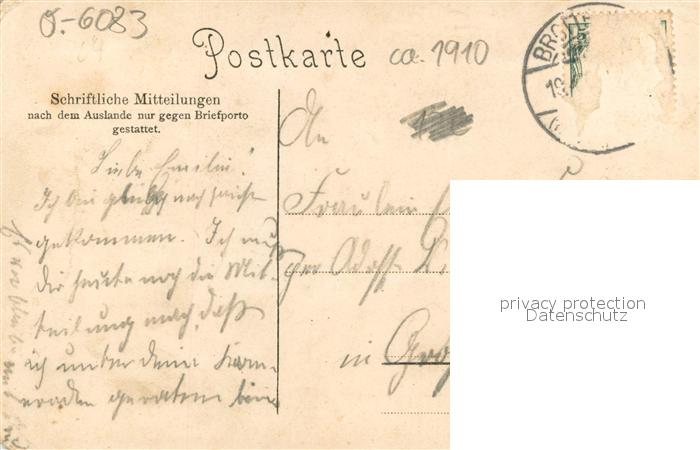 O-6083
Postkarte
ca. 1910
Schriftliche Mitteilungen
nach dem Auslande nur gegen Briefporto
gestattet.
An
Liebe Emilie!
Ich bin glücklich nach
Fräulein
gekommen. Ich muß
per Adolf
Dir heute noch die Mit-
teilung mach, daß
ich unter deine Kam-
in
eraden geraten bin
privacy protection
Datenschutz